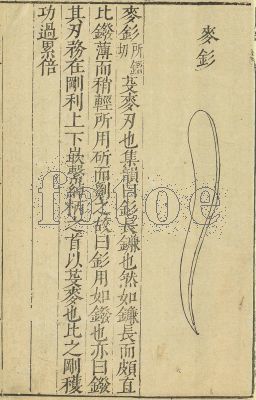 麥釤
麥釤所鑑切芟麥刃也集韻曰釤長鐮也然如鐮長而頗直
比鏺薄而稍輕所用斫而劖之故曰釤用如鏺也亦曰鏺
其刃務在剛利上下嵌繫綽柄之首以芟麥也比之剛穫
功過累倍
fotoe